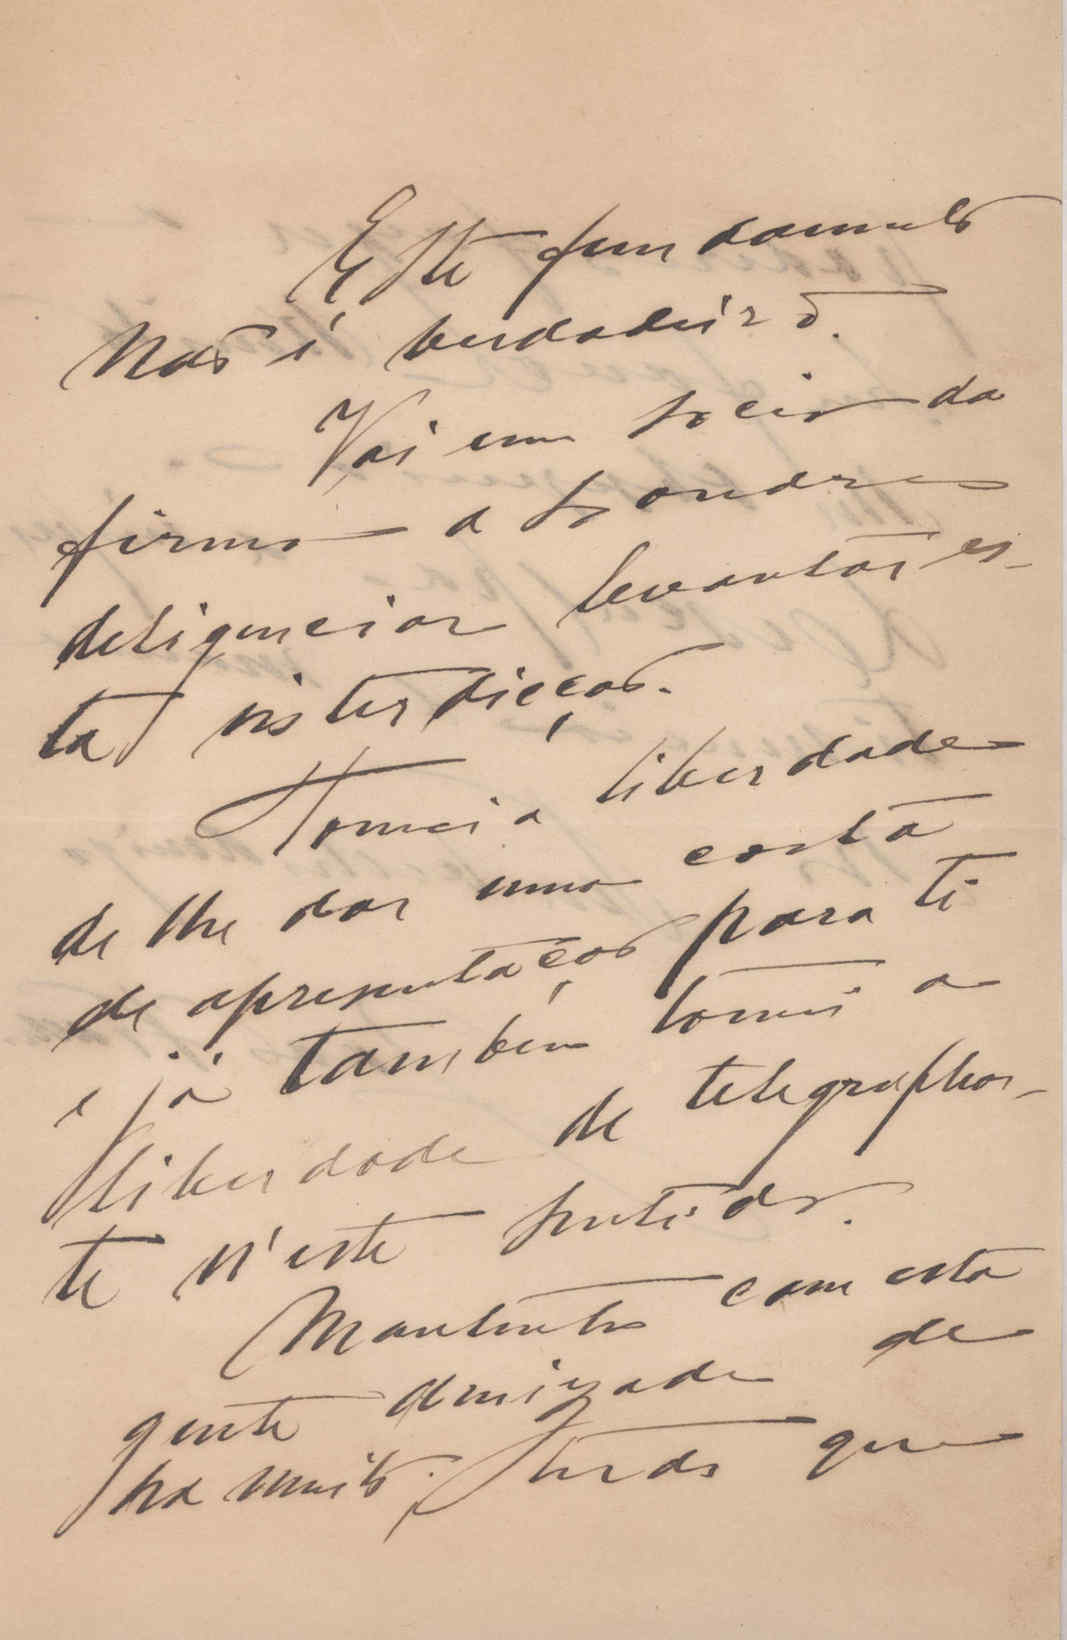 Este fundamento
não é verdadeiro.
Vai um socio da
firma a Londres
deligenciar levantar es-
ta interdicção.
Tomei a liberdade
de lhe dar uma carta
de apresentação para ti
e já tambem tomei a
liberdade de telegraphar-
te n'este sentido.
Mantenho com esta
gente amizade de
ha muito; tudo que